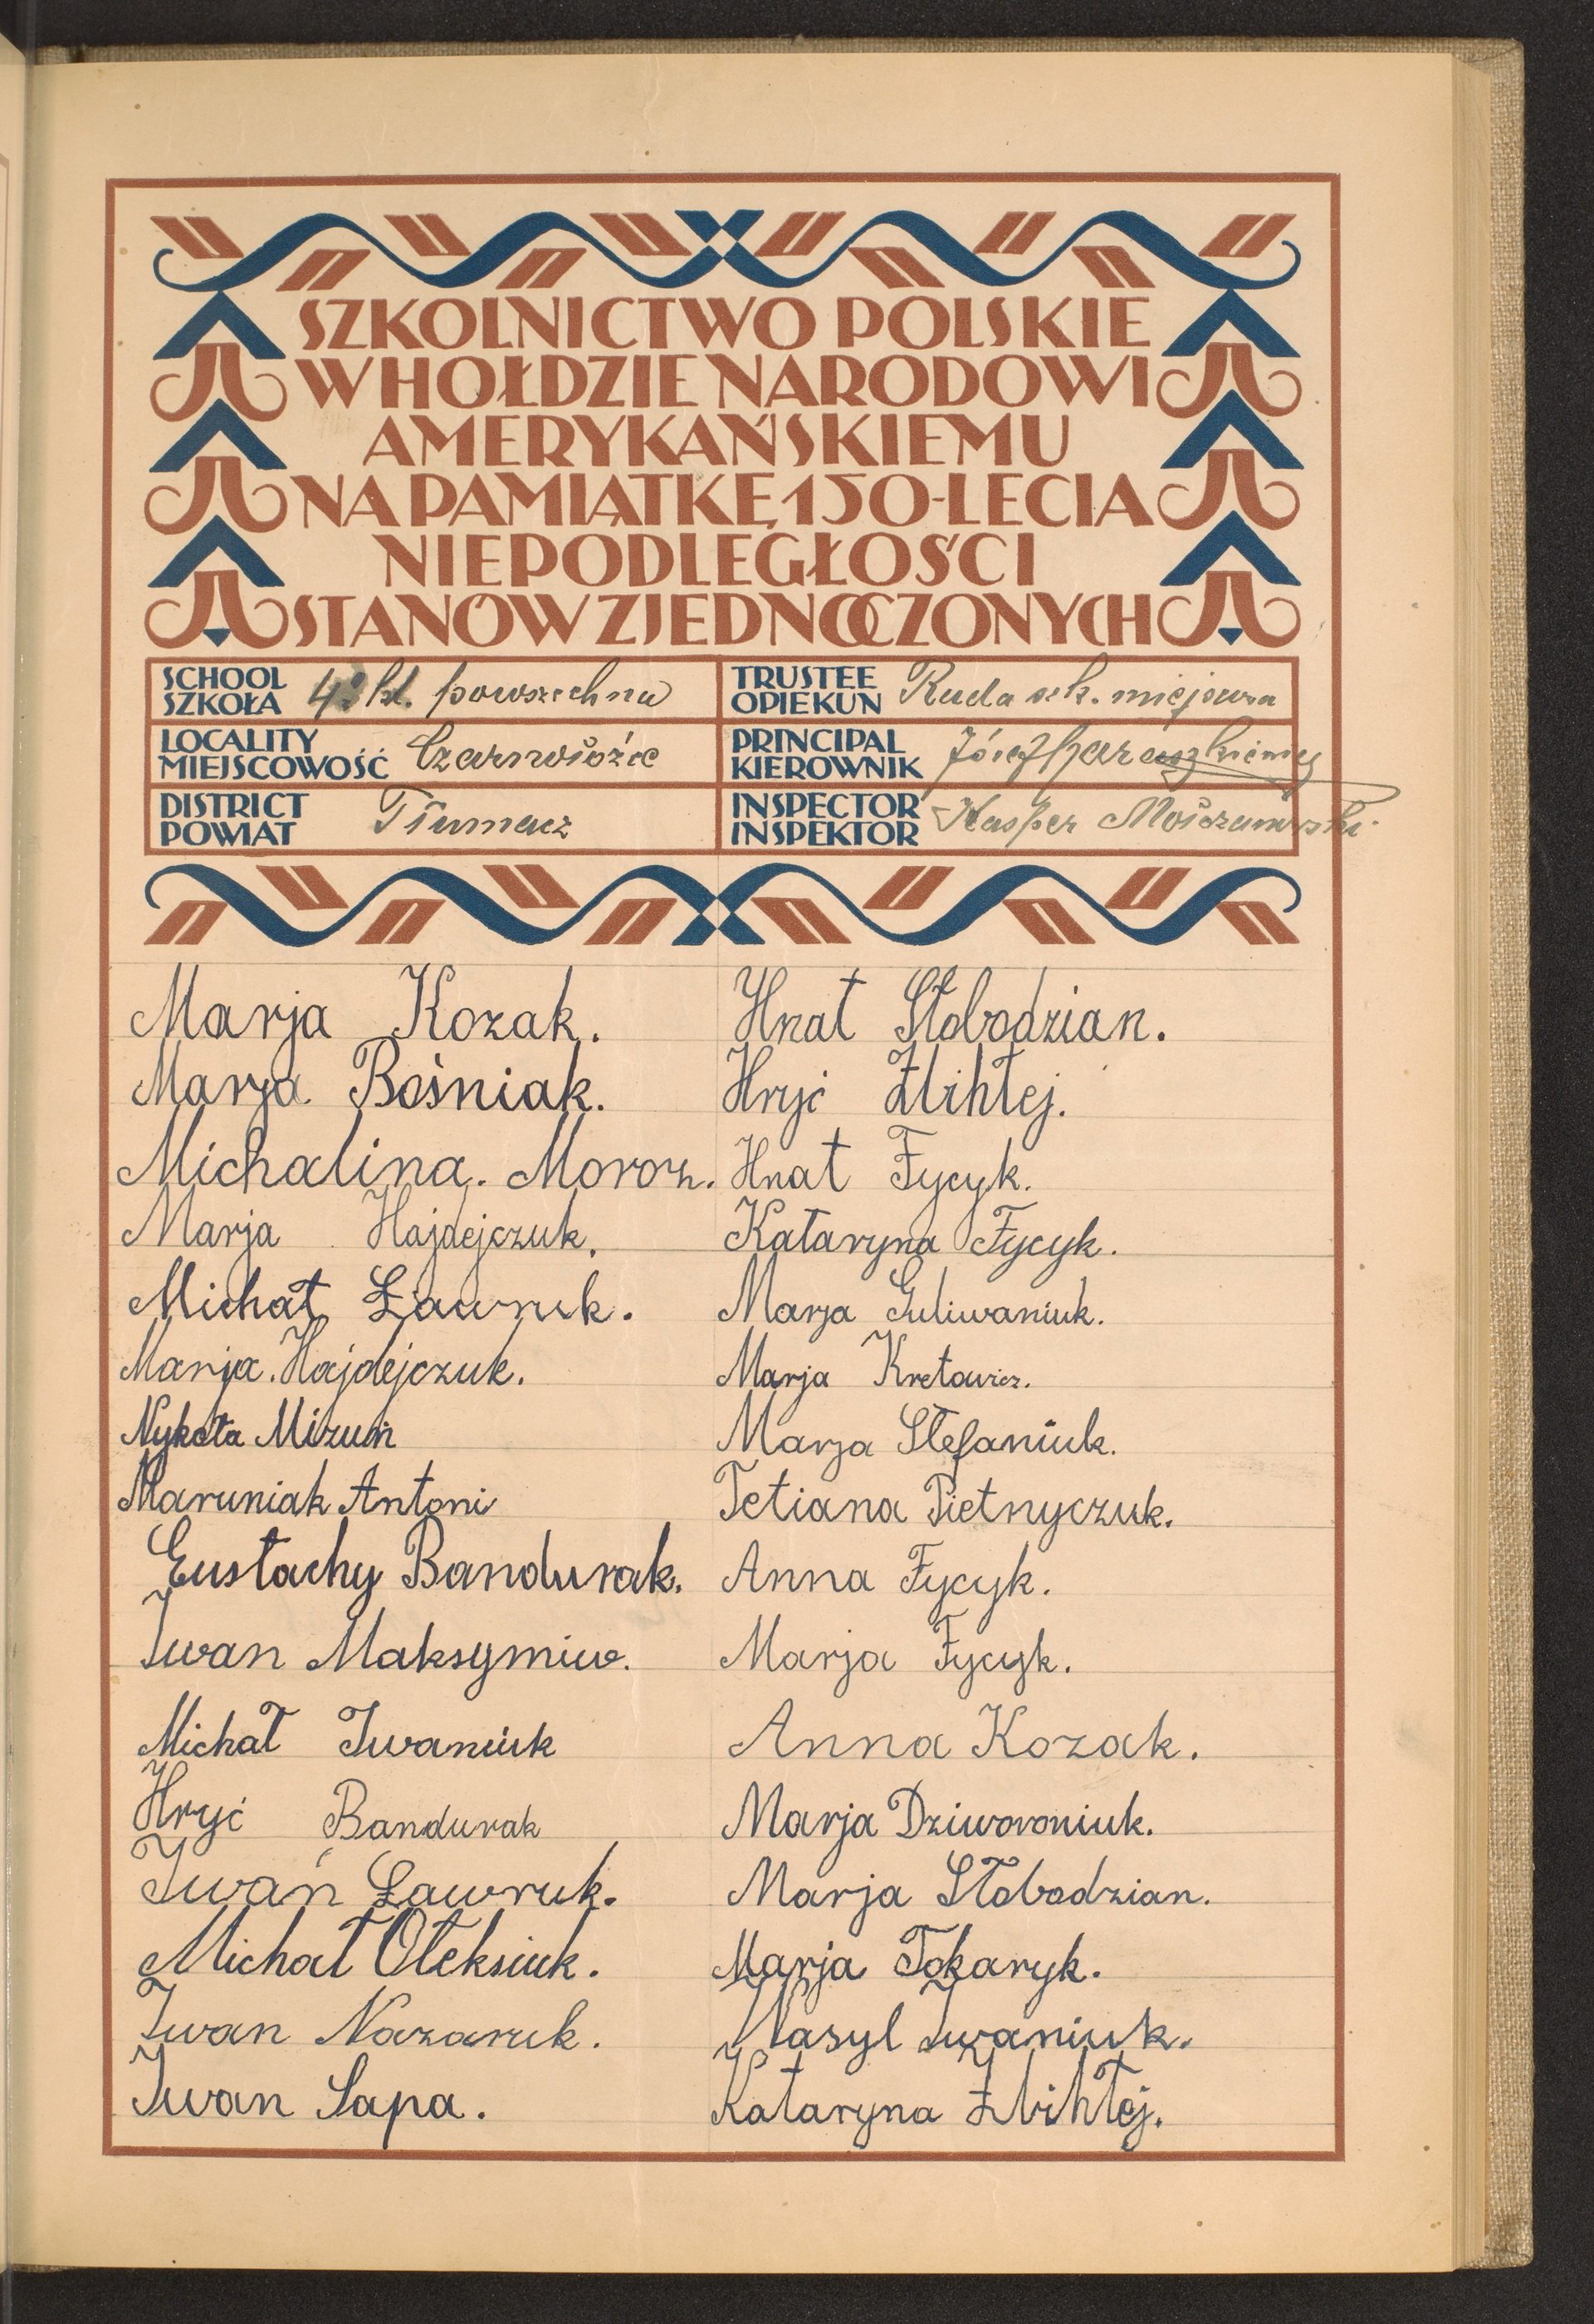 SZKOLNICTWO POLSKIE
W HOŁDZIE NARODOWI
AMERYKAŃSKIEMU
NA PAMIĄTKĘ 150-LECIA
NIEPODLEGŁOŚCI
STANÓW ZJEDNOCZONYCH
SCHOOL
SZKOŁA 4. kl. powszechna
TRUSTEE
OPIEKUN Rada szk. miejscowa
LOCALITY
MIEJSCOWOŚĆ Czarnołoźce
PRINCIPAL
KIEROWNIK Józef
DISTRICT
POWIAT Tłumacz
INSPECTOR
INSPEKTOR Kasper
Marja Kozak.
Marja Bośniak.
Michalina. Moroz.
Marja Hajdejczuk.
Michał Ławruk.
Marja. Hajdejczuk.
Nykoła Mizuń
Maruniak Antoni
Eustachy Bandurak.
Iwan Maksymiw.
Michał Iwaniuk
Hryć Bandurak
Iwan Ławruk.
Michał Ołeksiuk.
Iwan Nazaruk.
Iwan Sapa.
Hnat Słobodzian.
Hryć Zbihłej.
Hnat Fycyk.
Kataryna Fycyk.
Marja Guliwaniuk.
Marja Kretowicz.
Marja Stefaniuk.
Tetiana Pietnyczuk.
Anna Fycyk.
Marja Fycyk.
Anna Kozak.
Marja Dziworoniuk.
Marja Słobodzian.
Marja Tokaryk.
Wasyl Iwaniuk.
Kataryna Zbihłej.